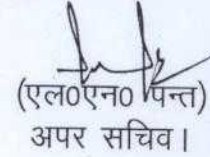 (एल०एन० पन्त)
अपर सचिव।